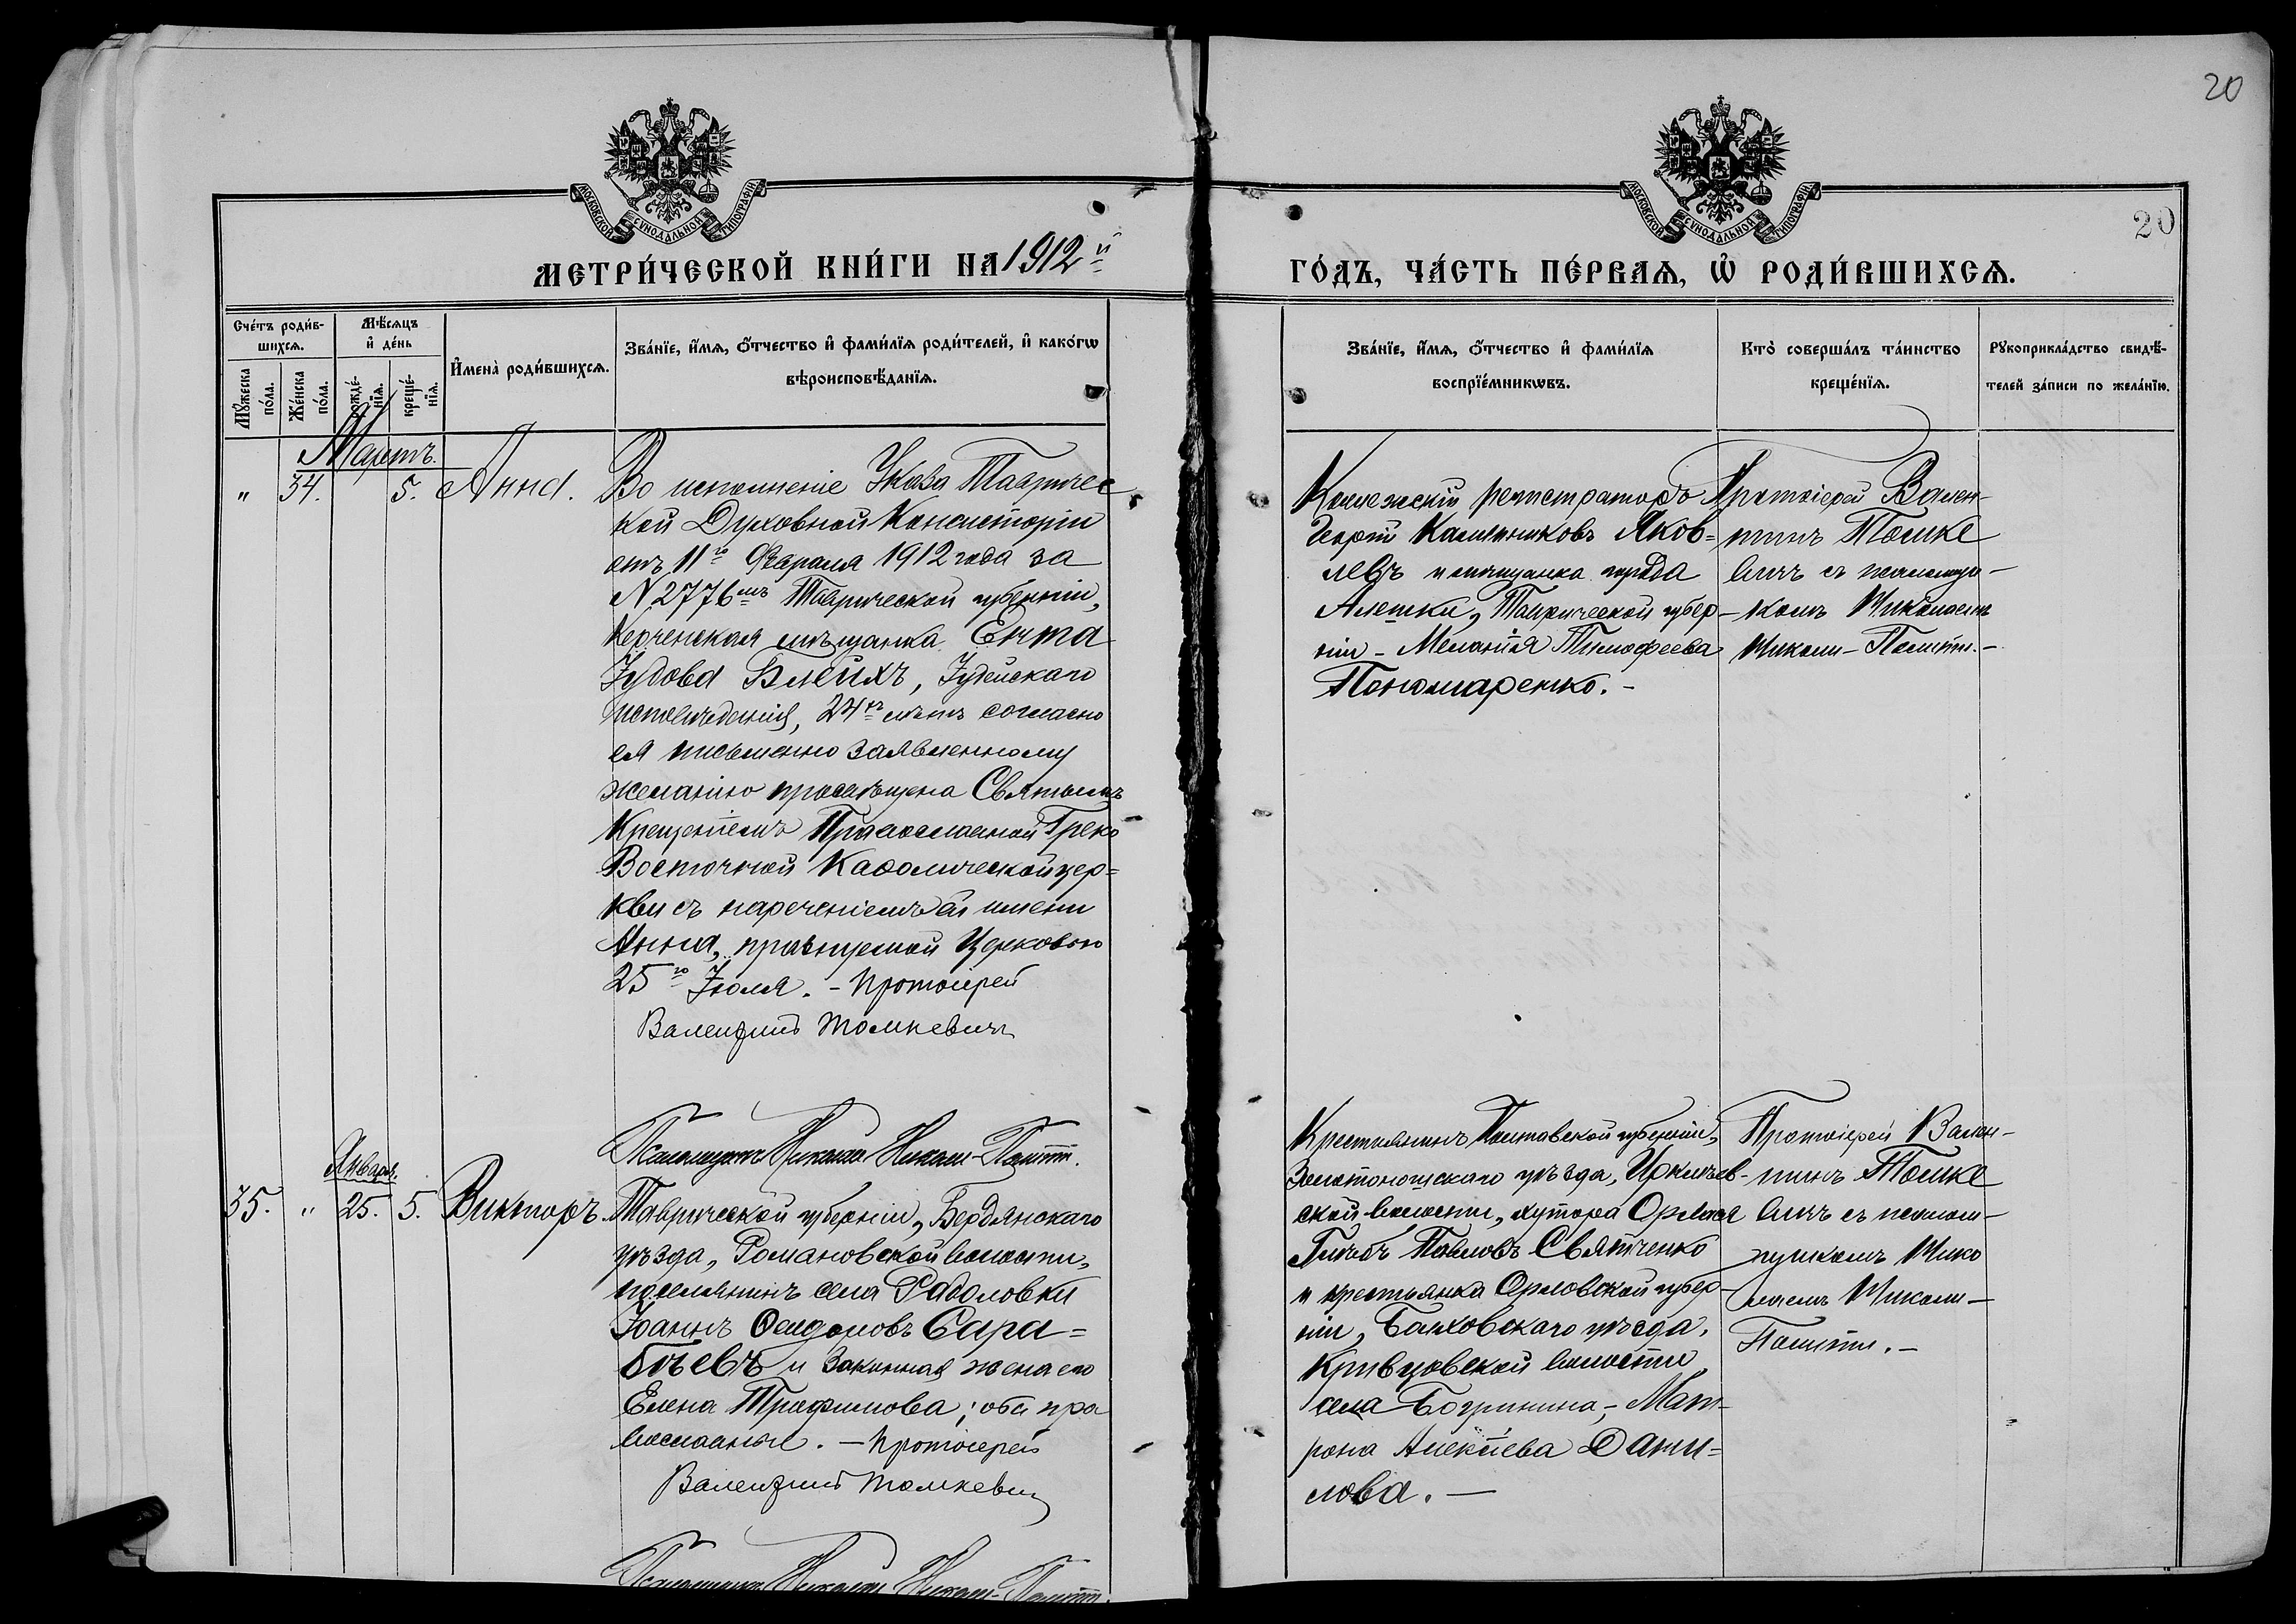 20
20
МОСКОВСКОЙ СѴНОДАЛЬНОЙ ТИПОГРАФІИ
МОСКОВСКОЙ СѴНОДАЛЬНОЙ ТИПОГРАФІИ
МЕТРИ́ЧЕСКОЙ КНИ́ГИ НА 1912й
ГО́ДЪ, ЧА́СТЬ ПЕ́РВАѦ, Ѡ҆ РОДИ́ВШИХСѦ.
Сче́тъ роди́в-
шихсѧ.
Мꙋ́жеска
по́ла.
Же́нска
по́ла.
Мѣ́сѧцъ
и҆ де́нь
рожде́-
нїѧ.
креще́-
нїѧ.
И҆мена̀ роди́вшихсѧ.
Зва́нїе, и҆́мѧ, ѻ҆́тчество и҆ фами́лїѧ роди́телей, и҆ како́гѡ
вѣроисповѣ́данїѧ.
Зва́нїе, и҆́мѧ, ѻ҆́тчество и҆ фами́лїѧ
воспрїе́мникѡвъ.
Кто̀ соверша́лъ та́инство
креще́нїѧ.
Рꙋкоприкла́дство свидѣ́-
телей за́писи по жела́нїю.
Мартъ.
" 34. 5. Анна.
Во исполненіе Указа Тавричес
кой Духовной Консисторіи
отъ 11го Февраля 1912 года за
N 2776мъ Таврической губерніи,
Керченская мѣщанка Ента
Іудова Блейхъ, Іудейскаго
исповѣданія, 24хъ лѣтъ согласно
ея письменно заявленному
желанію просвѣщена Святымъ
Крещеніемъ Православной Греко
Восточной Каѳолической цер=
кви съ нареченіемъ ей имени
Анна, празнуемой Церковью
25го Іюля. - Протоіерей
Валентинъ Томкевичъ
Псаломщикъ Николай Николи-Политти.
Коллежскій регистраторъ
Георгій Калитниковъ Яков=
левъ и мѣщанка города
Алешки, Таврической губер-
ніи - Меланія Тимофеева
Пономаренко. -
Протоіерей Вален-
тинъ Томке
вичъ съ псаломщи-
комъ Николаемъ
Николи-Политти. -
Января.
35. " 25. 5. Викторъ.
Таврической губерніи, Бердянскаго
уѣзда, Романовской волости,
поселянинъ села Радоловки
Іоаннъ Сидоровъ Сара=
бѣевъ и законная жена его
Елена Трофимова; оба пра
вославные. - Протоіерей
Валентинъ Томкевичъ
Псаломщикъ Николай Николи-Политти.
Крестьянинъ Полтавской губерніи,
Золотоношскаго уѣзда, Ирклѣев-
ской волости, хутора Орлая
Глѣбъ Павловъ Святченко
и крестьянка Орловской губер-
ніи, Болховскаго уѣзда,
Кривцовской волости,
села Богринина, - Мат-
рона Алексѣева Дани=
лова. -
Протоіерей Вален-
тинъ Томке
вичъ съ псалом-
щикомъ Нико
лаемъ Николи-
Политти. -